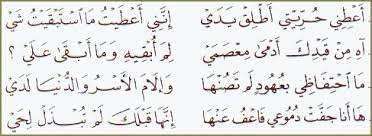 أَعْطِنِي حُرِّيَّتِي أَطْلِقْ يَدَيَّ إِنَّنِي أَعْطَيْتُ مَا اسْتَبْقَيْتُ شَيَّ
آهِ مِنْ قَيْدِكَ أَدْمَى مِعْصَمِي لِمَ أُبْقِيهِ وَمَا أَبْقَى عَلَيَّ ؟
مَا احْتِفَاظِي بِعُهُودٍ لَمْ تَصُنْهَا وَإِلَامَ الْأَسْرُ وَالدُّنْيَا لَدَيَّ
هَا أَنَا جَفَّتْ دُمُوعِي فَاعْفُ عَنْهَا إِنَّهَا قَبْلَكَ لَمْ تُبْذَلْ لِحَيِّ